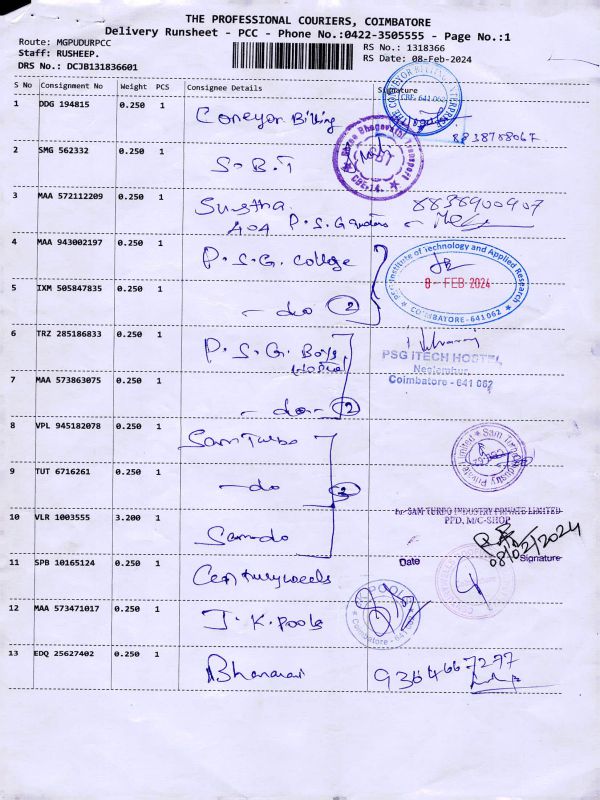 THE PROFESSIONAL COURIERS, COIMBATORE
Delivery Runsheet - PCC - Phone No.:0422-3505555 - Page No.:1
Route: MGPUDURPCC
Staff: RUSHEEP.
DRS No.: DCJB131836601
RS No.: 1318366
RS Date: 08-Feb-2024
S No Consignment No Weight PCS Consignee Details Signature
1 DDG 194815 0.250 1 Coneyor Billing
CBE-641 062
2 SMG 562332 0.250 1 S.B.T
Sree Bhagavathi Transport
CBE-14.
3 MAA 572112209 0.250 1 8838900907
404 P.S.G
4 MAA 943002197 0.250 1 P.S.G. College
Institute of Technology and Applied Research
8 - FEB 2024
COIMBATORE-641 062
5 IXM 505847835 0.250 1 - do 2
6 TRZ 285186833 0.250 1 P.S.G. Boys
Hostel
PSG ITECH HOSTEL
Neelambur,
Coimbatore - 641 062
7 MAA 573863075 0.250 1 - do - 2
8 VPL 945182078 0.250 1 Sam Turbo
Sam Turbo Industry Private Limited
9 TUT 6716261 0.250 1 - do 3
10 VLR 1003555 3.200 1
for SAM TURBO INDUSTRY PRIVATE LIMITED
PFD, M/C-SHOP
08/02/2024
Date Signature
11 SPB 10165124 0.250 1
12 MAA 573471017 0.250 1 J.K. Pools
Coimbatore - 641
13 EDQ 25627402 0.250 1 9364667277